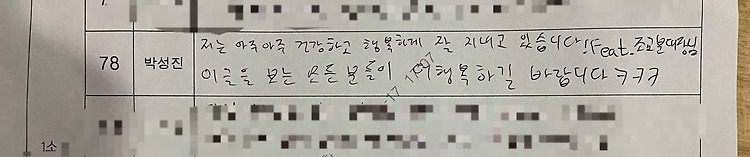 저는 아주아주 건강하고 행복하게 잘 지내고 있습니다!(Feat.조교분대장님
78 박성진
이글을 보는 모든 분들이 행복하길 바랍니다 ㅋㅋㅋ
1소